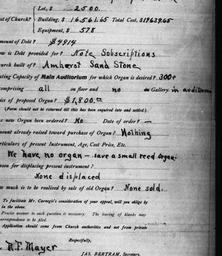 Lot, $ 2500.
of Church? Building, $ 16561.65 Total Cost, $19639.65
Equipment, $ 578
mount of Debt? $9914
w is Debt provided for? Note Subscriptions
urch built of? Amherst Sand Stone,
ating Capacity of Main Auditorium for which Organ is desired? 300+
omprising all on floor and no in Gallery.
ice of proposed Organ? $1,800.00
(Form should not be returned till this has been inquired into and settled.)
s new Organ been ordered? No Date of order —
ount already raised toward purchase of Organ? Nothing
rticulars of present Instrument, Age, Cost Price, Etc.
We have no organ — save a small reed organ
son for displacing present instrument?
None displaced
w much is to be realized by sale of old Organ? None sold.
To facilitate Mr. Carnegie's consideration of your appeal, will you oblige by
in the above.
Precise answer to each question is necessary. The leaving of blanks may
correspondence to be filed.
Application should come from Church authorities and not from private
Respectfully,
R.F. Mayer
JAS. BERTRAM, Secretary.